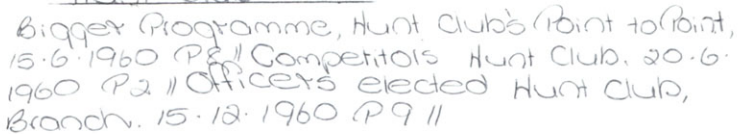 Bigger Programme, Hunt Club's Point to Point,
15.6.1960 P8 // Competitors Hunt Club. 20.6.
1960 P2 // Officers elected Hunt Club,
Branch. 15.12.1960 P9 //